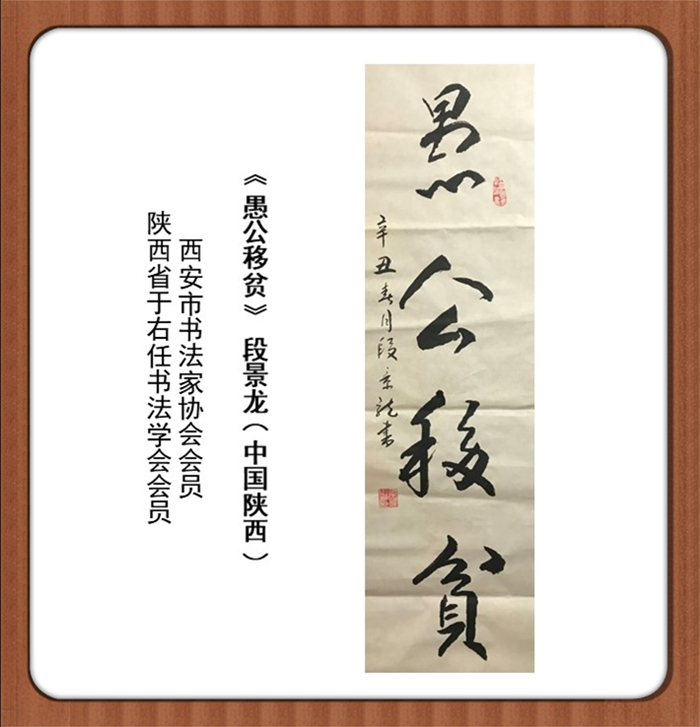 愚公移貧
辛丑春月段景龍書
《愚公移贫》 段景龙（中国陕西）
西安市书法家协会会员
陕西省于右任书法学会会员